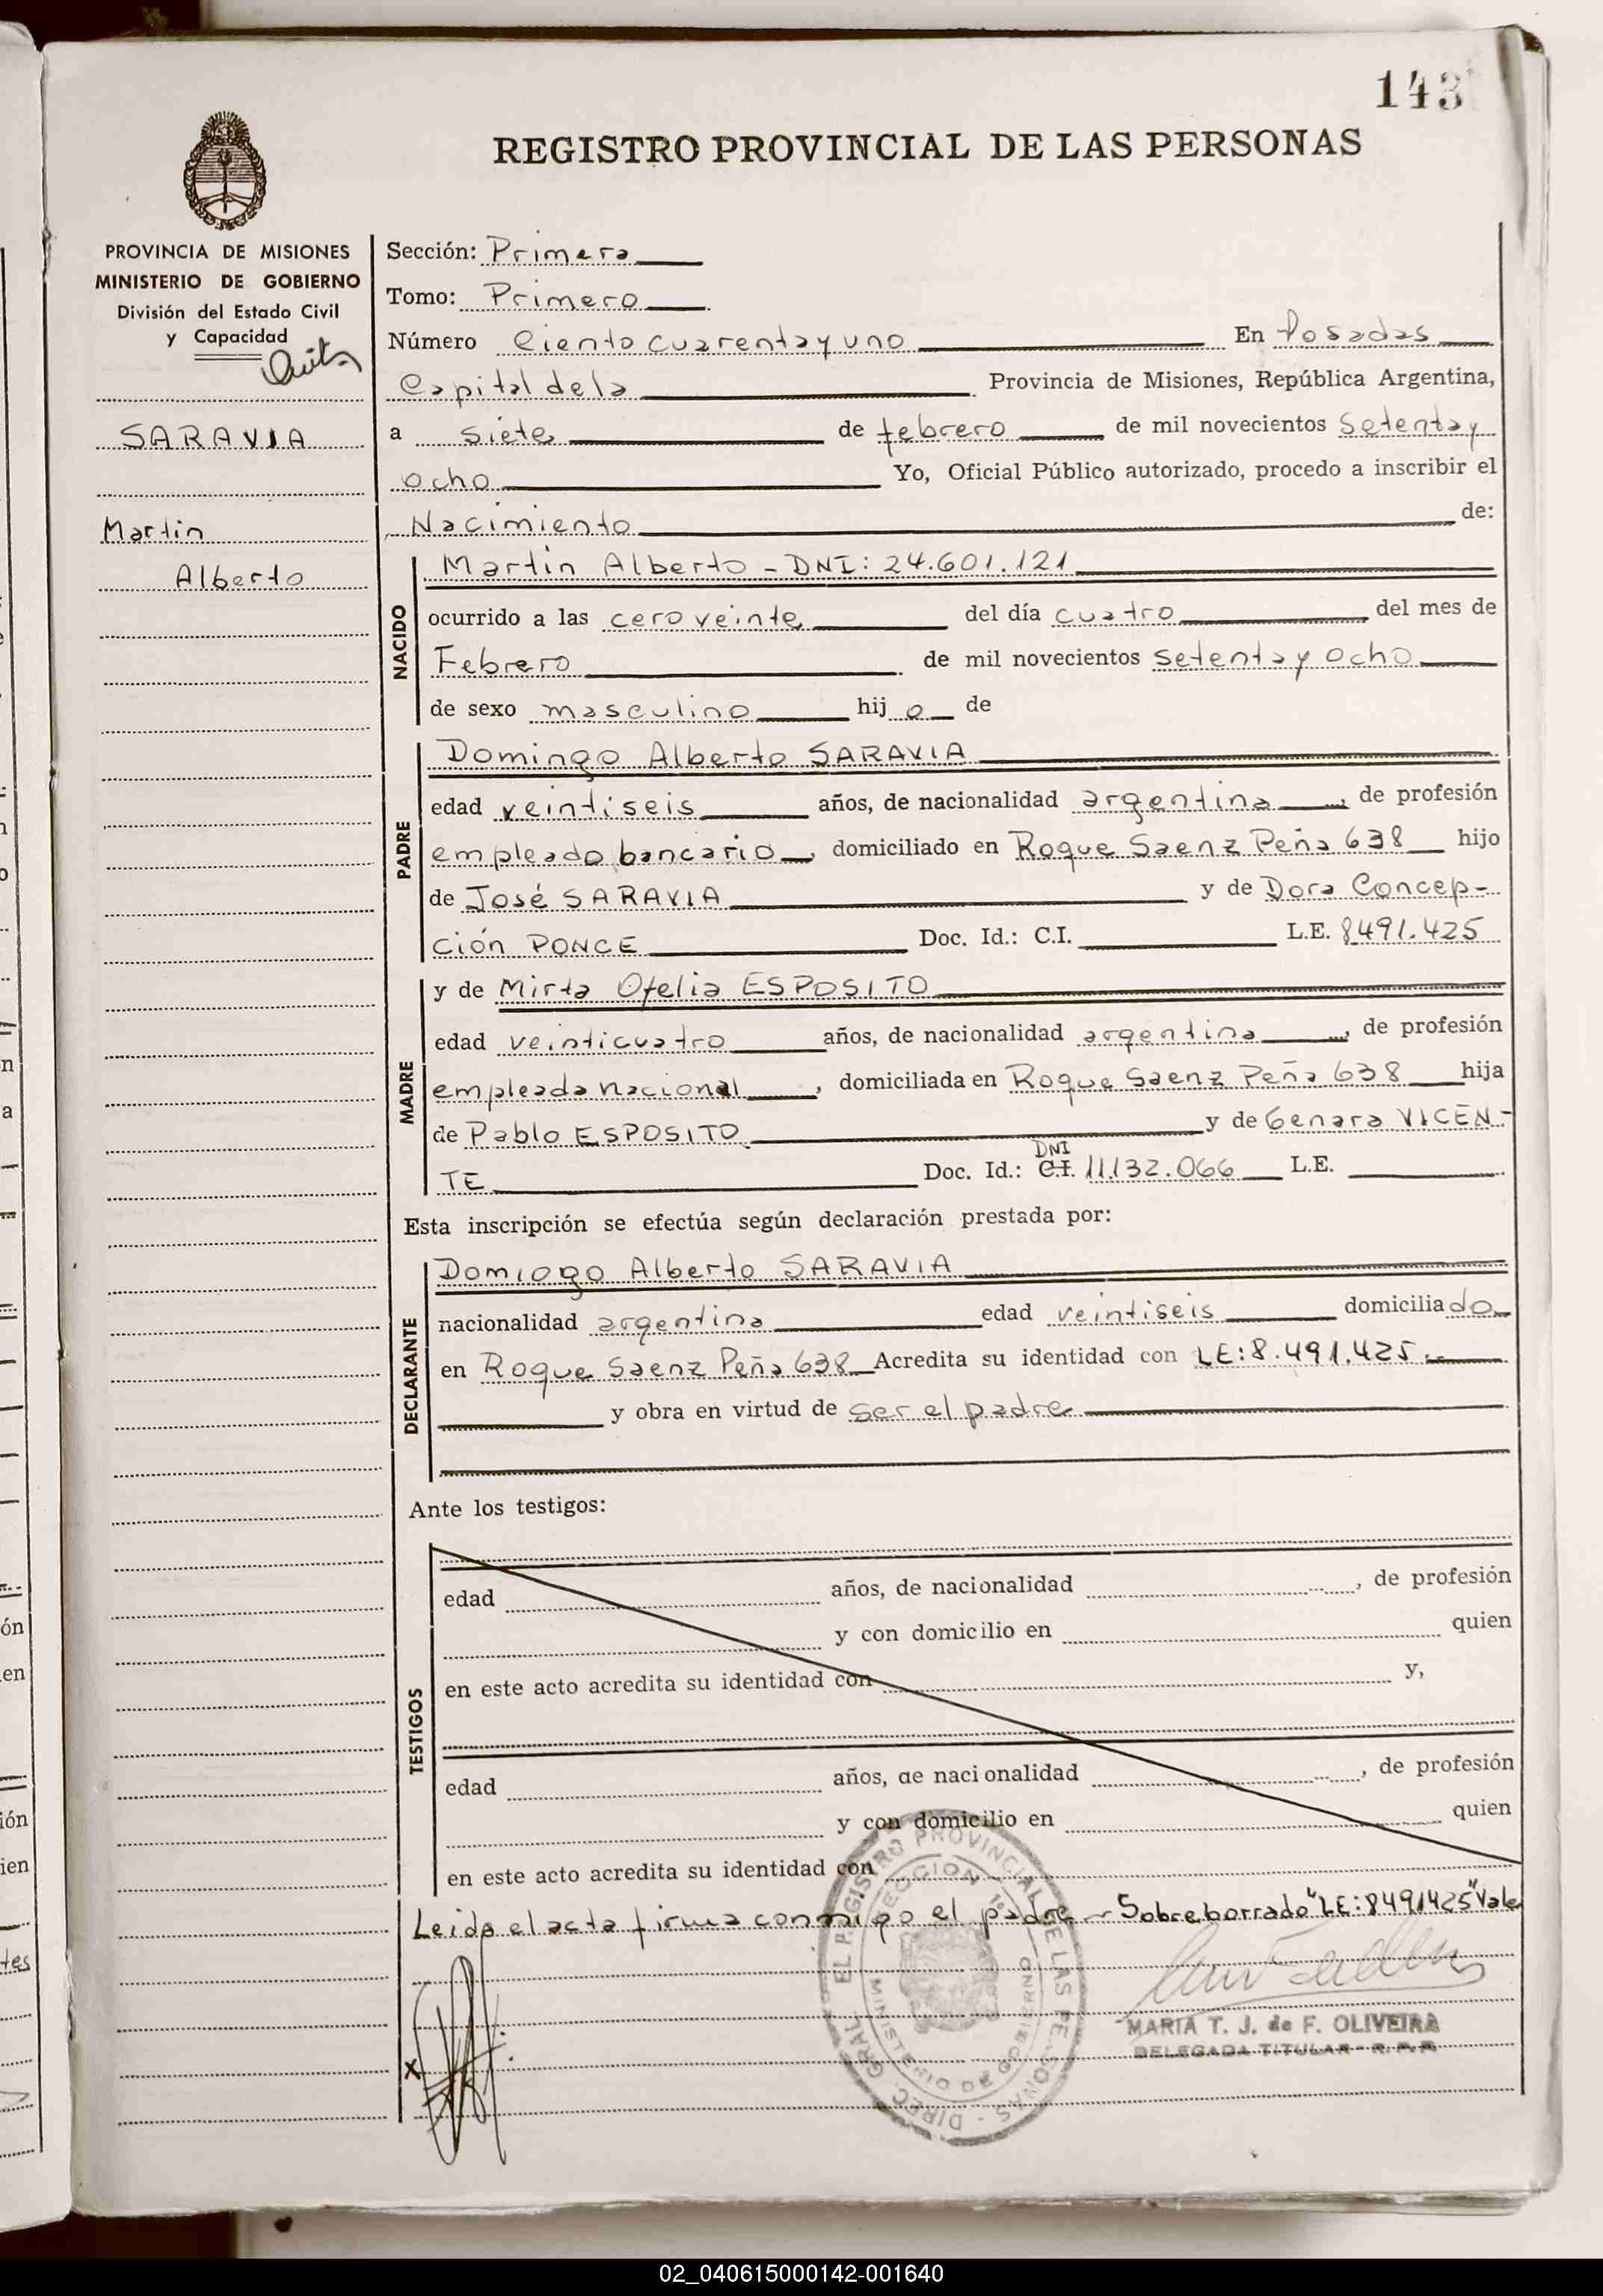 143
REGISTRO PROVINCIAL DE LAS PERSONAS
PROVINCIA DE MISIONES
MINISTERIO DE GOBIERNO
División del Estado Civil
y Capacidad
SARAVIA
Martin
Alberto
Sección: Primera
Tomo: Primero
Número Ciento cuarenta y uno En Posadas
Capital de la Provincia de Misiones, República Argentina,
a siete de febrero de mil novecientos setenta y
ocho Yo, Oficial Público autorizado, procedo a inscribir el
Nacimiento de:
NACIDO
Martin Alberto - DNI: 24.601.121
ocurrido a las cero veinte del día cuatro del mes de
Febrero de mil novecientos setenta y ocho
de sexo masculino hij o de
PADRE
Domingo Alberto SARAVIA
edad veintiseis años, de nacionalidad argentina, de profesión
empleado bancario, domiciliado en Roque Saenz Peña 638 hijo
de José SARAVIA y de Dora Concep-
ción PONCE Doc. Id.: C.I. L.E. 8491.425
MADRE
y de Mirta Ofelia ESPOSITO
edad veinticuatro años, de nacionalidad argentina, de profesión
empleada nacional, domiciliada en Roque Saenz Peña 638 hija
de Pablo ESPOSITO y de Genara VICEN-
DNI
TE Doc. Id.: C.I. 11.132.066 L.E.
Esta inscripción se efectúa según declaración prestada por:
DECLARANTE
Domingo Alberto SARAVIA
nacionalidad argentina edad veintiseis domiciliado
en Roque Saenz Peña 638 Acredita su identidad con LE: 8.491.425.-
y obra en virtud de ser el padre
Ante los testigos:
TESTIGOS
edad años, de nacionalidad , de profesión
y con domicilio en quien
en este acto acredita su identidad con y,
edad años, de nacionalidad , de profesión
y con domicilio en quien
en este acto acredita su identidad con
Leida el acta firma conmigo el padre - Sobreborrado "LE: 8491425" Vale
X
DIREC. GRAL. DEL REGISTRO PROVINCIAL DE LAS PERSONAS -
SECCION 1º
MINISTERIO DE GOBIERNO
MARIA T. J. de F. OLIVEIRA
DELEGADA TITULAR - R. P. P.
02_040615000142-001640